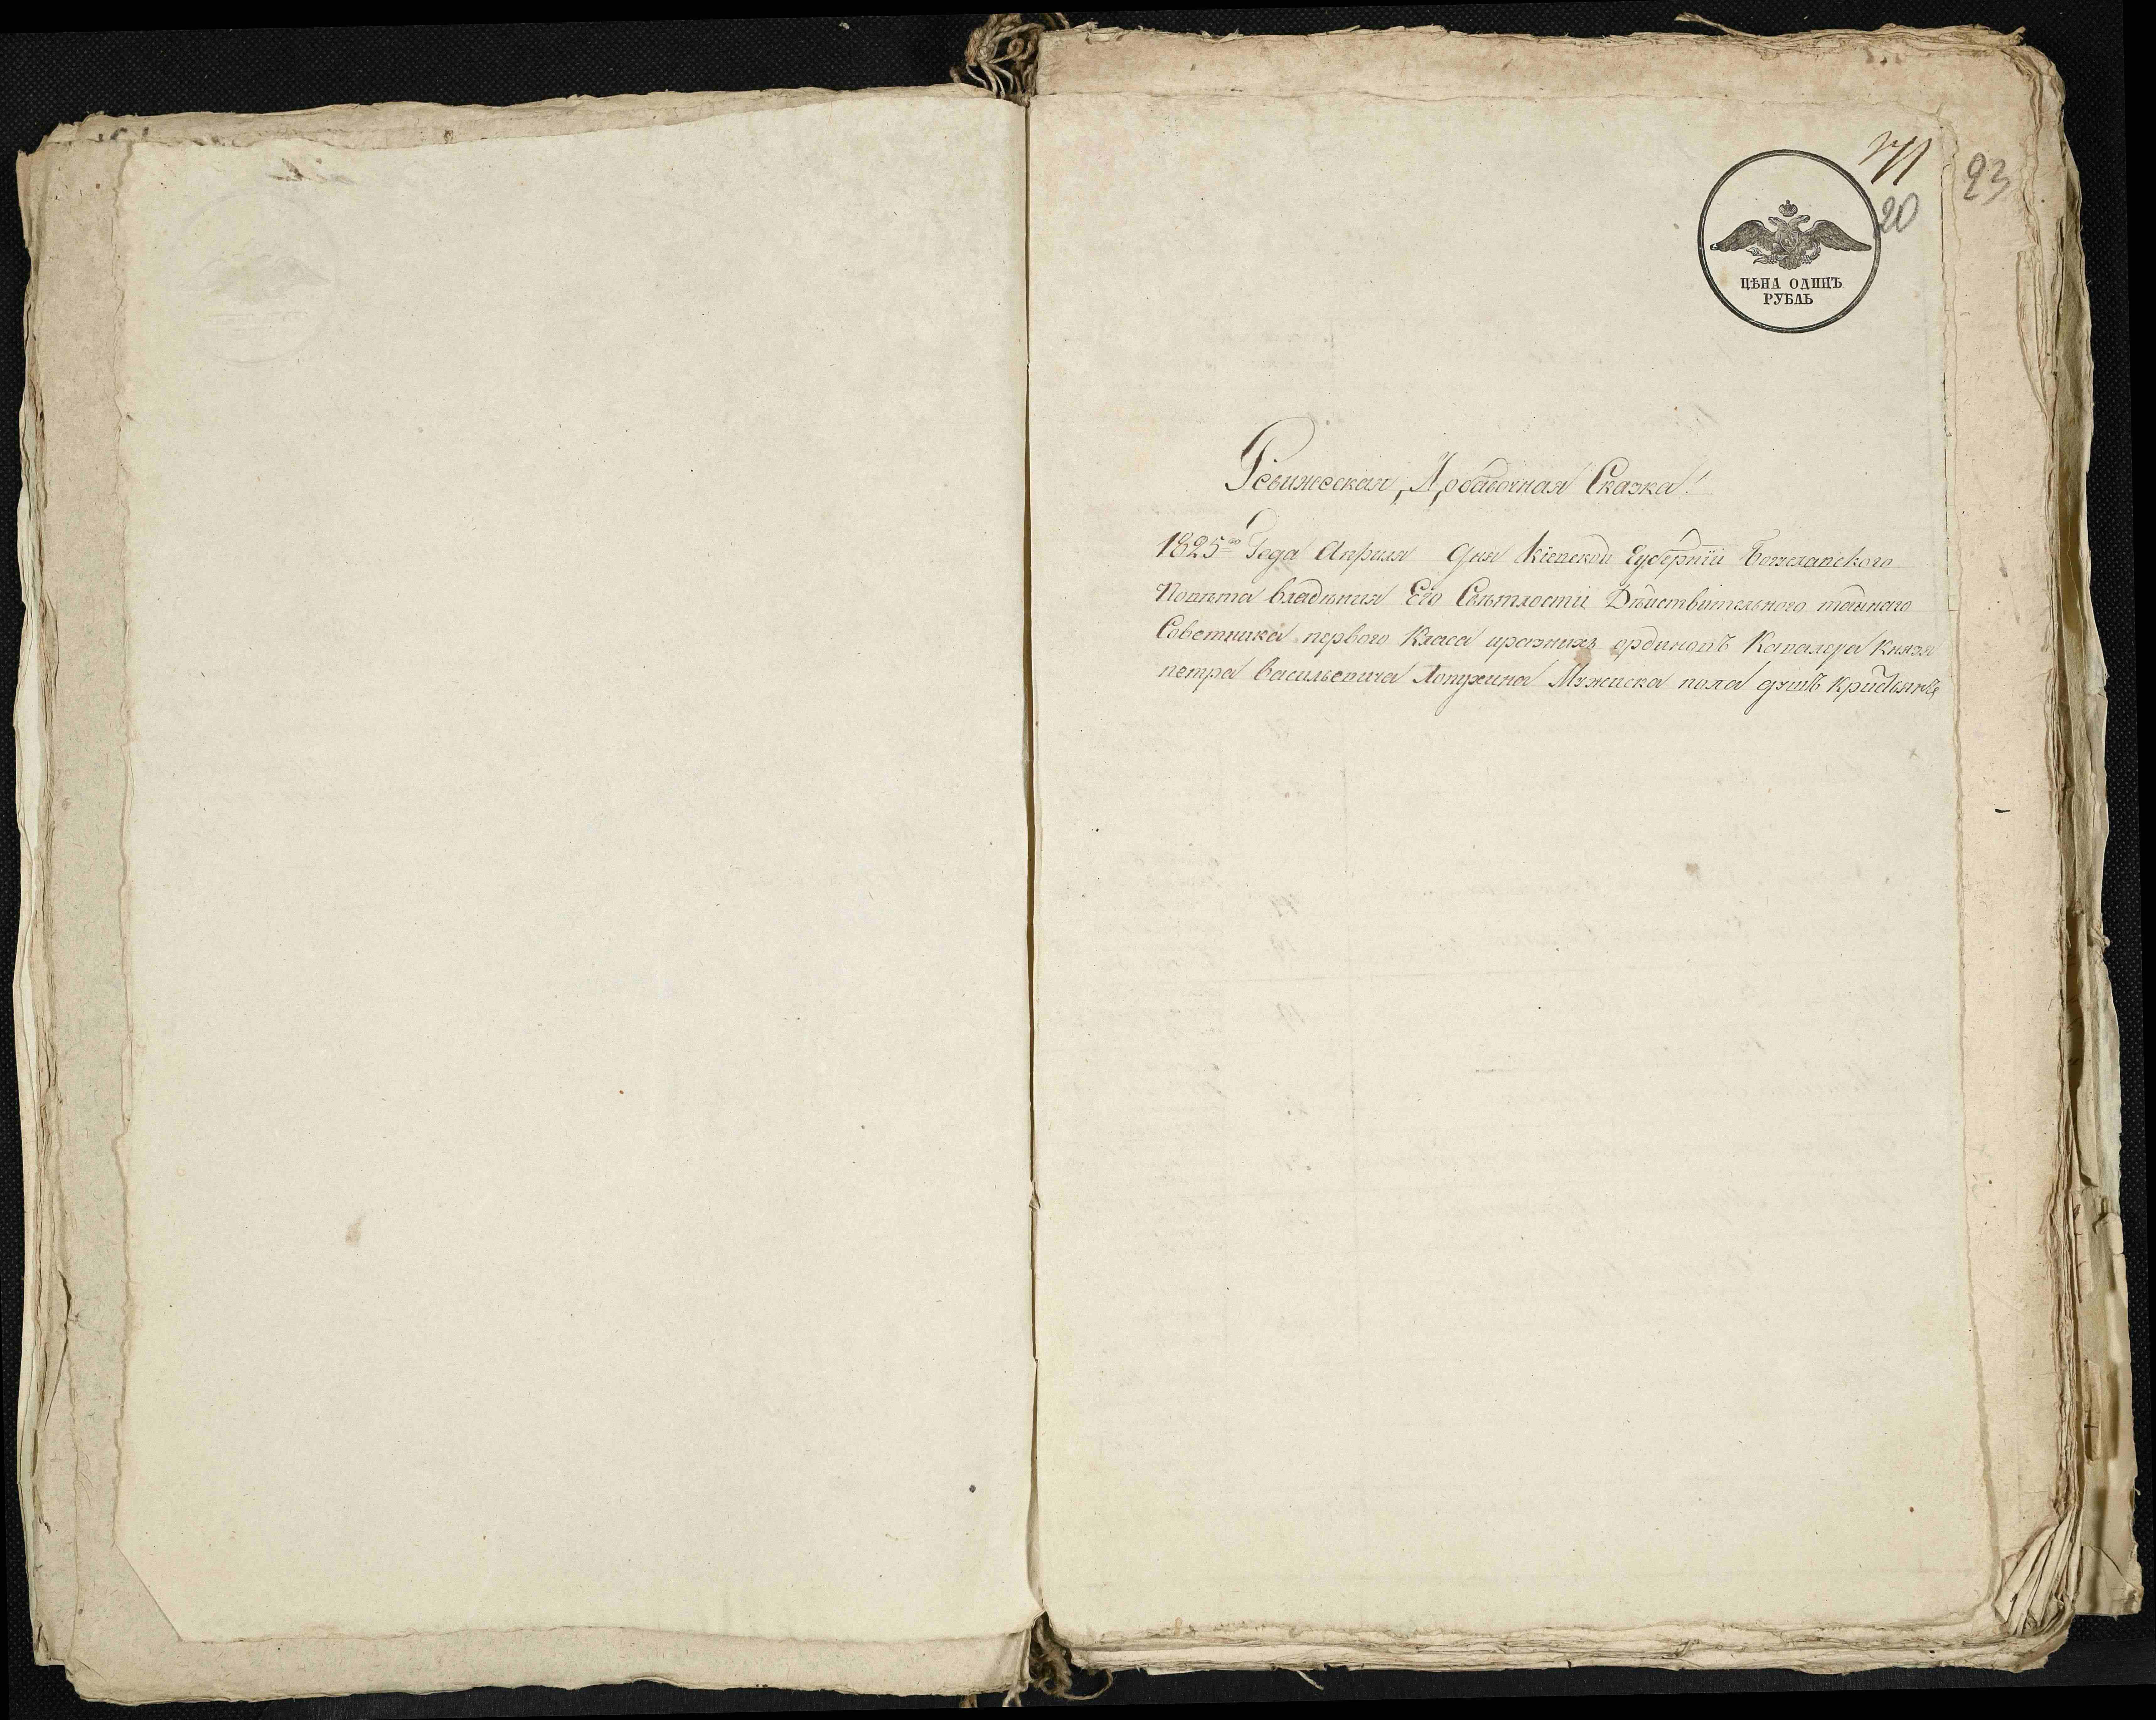 71
23
20
ЦѢНА ОДИНЪ
РУБЛЬ
Ревижеская, Добавочная Сказка!
1825го Года Апреля Дня Кіевской Губерніи Богуславского
Повѣта владѣния Его Свѣтлости Дѣйствительного тайнаго
Советника первого Класа иразнихъ ординовъ Кавалера Князя
петра Васильевича Лопухина Мужеска пола душъ кристьянъ